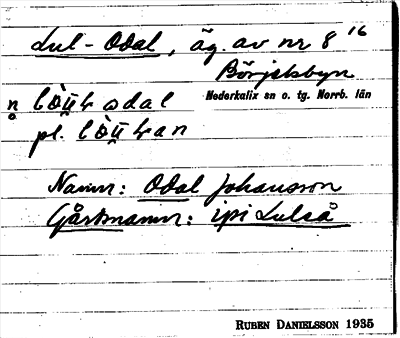 Lul-Odal, äg. av nr 8 16
Börjelsbyn
Nederkalix sn o. tg. Norrb. län
odal
pl.
Namn: Odal Johansson
Gårdsnamn: ipi Lulså
RUBEN DANIELSSON 1935